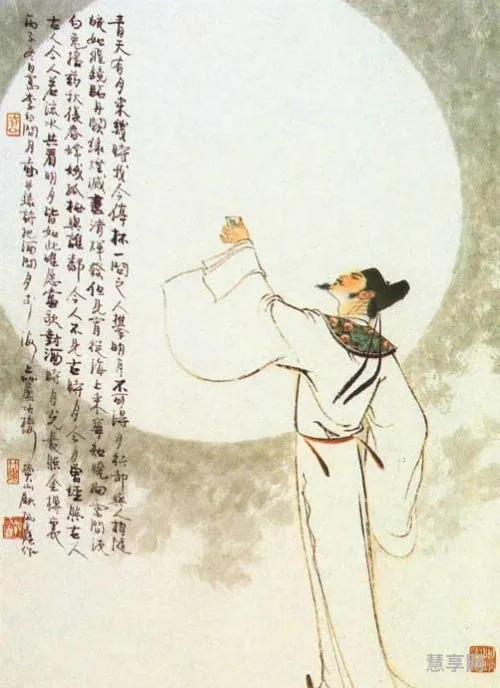 青天有月來幾時我今停杯一問之人攀明月不可得月行卻與人相隨
皎如飛鏡臨丹闕綠煙滅盡清輝發但見宵從海上來寧知曉向雲間沒
白兔搗藥秋復春嫦娥孤栖與誰鄰今人不見古時月今月曾經照古人
古人今人若流水共看明月皆如此唯願當歌對酒時月光長照金樽裏
丙子冬日寫李白問月 錄詩把酒問月於海上 寶山顧炳鑫作
慧享